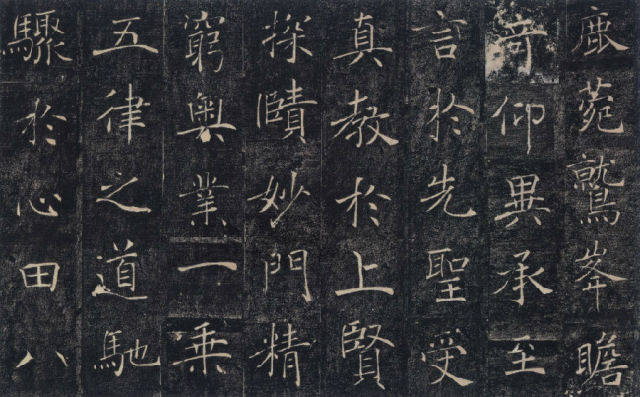 鹿菀鷲峯瞻
奇仰異承至
言於先聖受
真教於上賢
探賾妙門精
窮奧業一乘
五律之道馳
驟於心田八